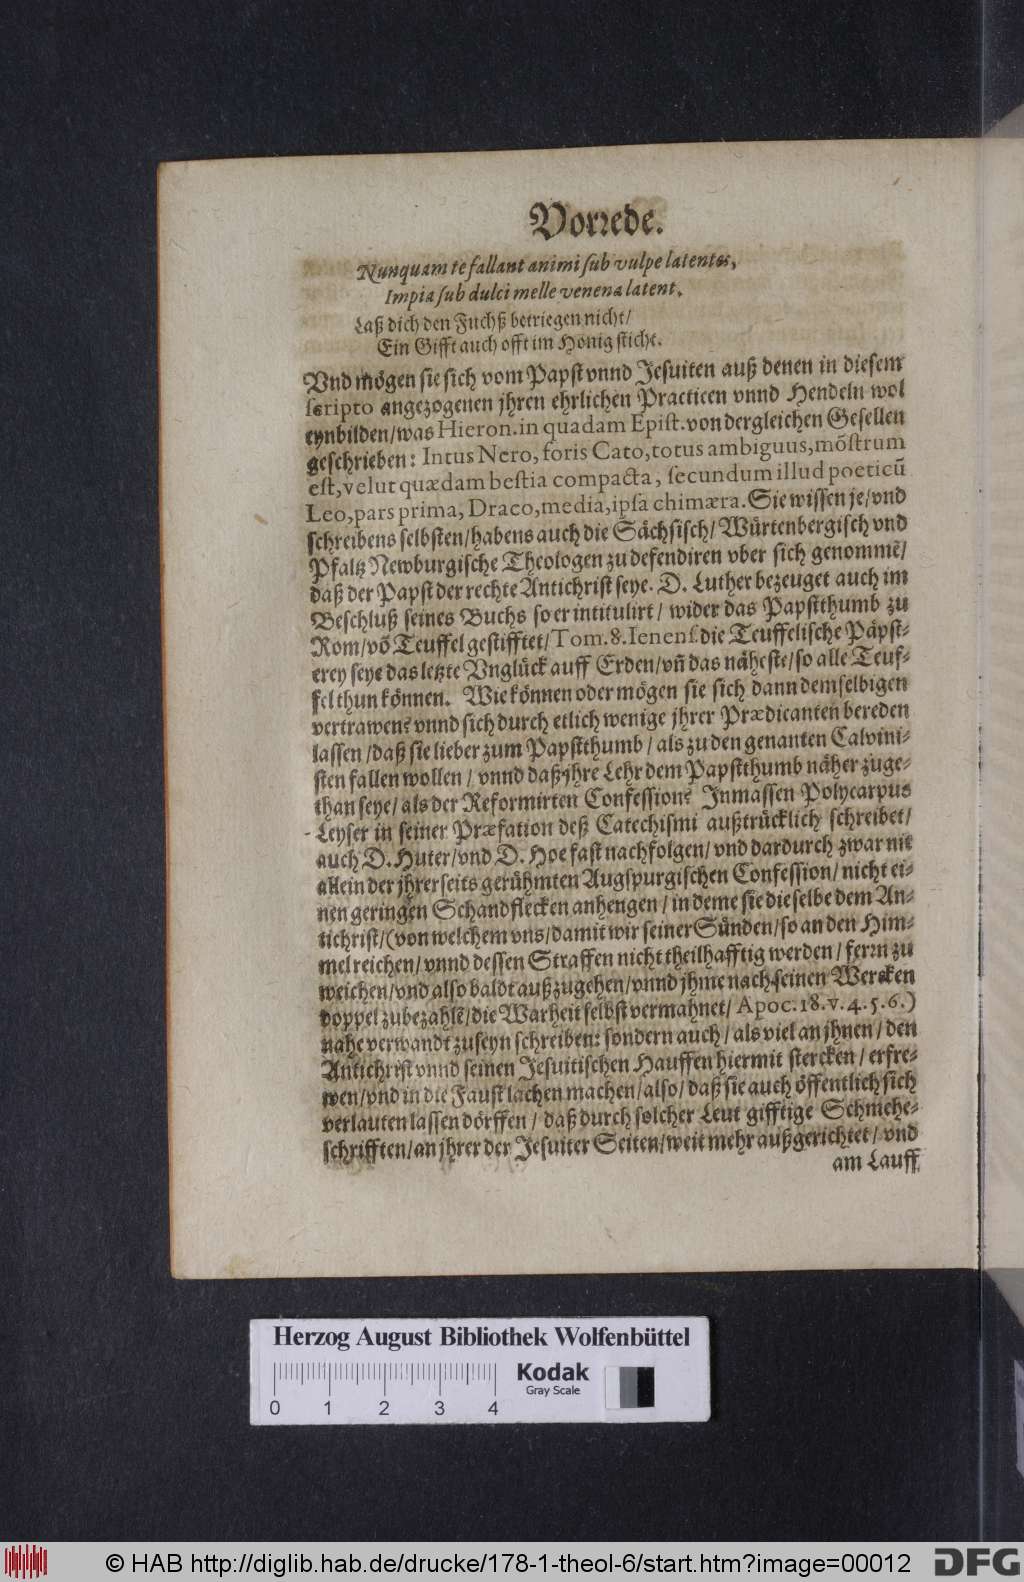 Vorrede.
Nunquam te fallant animi ſub vulpe latentes,
Impia ſub dulci melle venena latent.
Laß dich den Fuchß betriegen nicht/
Ein Gifft auch offt im Honig ſticht.
Vnd mögen ſie ſich vom Papſt vnnd Jeſuiten auß denen in dieſem
ſcripto angezogenen jhren ehrlichen Practicen vnnd Hendeln wol
eynbilden/was Hieron. in quadam Epiſt. von dergleichen Geſellen
geſchrieben: Intus Nero, foris Cato, totus ambiguus, mõſtrum
eſt, velut quædam beſtia compacta, ſecundum illud poeticũ
Leo, pars prima, Draco, media, ipſa chimæra. Sie wiſſen je/vnd
ſchreibens ſelbſten/habens auch die Sächſiſch/ Würtenbergiſch vnd
Pfaltz Newburgiſche Theologen zu defendiren vber ſich genommẽ/
daß der Papſt der rechte Antichriſt ſeye. D. Luther bezeuget auch im
Beſchluß ſeines Buchs ſo er intitulirt/ wider das Papſtthumb zu
Rom/võ Teuffel geſtifftet/Tom. 8. Ienenſ. die Teuffeliſche Päpſt-
erey ſeye das letzte Vnglück auff Erden/vñ das näheſte/ſo alle Teuf-
fel thun können. Wie können oder mögen ſie ſich dann demſelbigen
vertrawen? vnnd ſich durch etlich wenige jhrer Prædicanten bereden
laſſen/daß ſie lieber zum Papſtthumb/als zu den genanten Calvini-
ſten fallen wollen/ vnnd daß jhre Lehr dem Papſtthumb näher zuge-
than ſeye/als der Reformirten Confeſſion? Inmaſſen Polycarpus
Leyſer in ſeiner Præfation deß Catechiſmi außtrücklich ſchreibet/
auch D. Huter/vnd D. Hoe faſt nachfolgen/vnd dardurch zwar nit
allein der jhrerſeits gerühmten Augſpurgiſchen Confeſſion/nicht ei-
nen geringen Schandflecken anhengen/in deme ſie dieſelbe dem An-
tichriſt/(von welchem vns/damit wir ſeiner Sünden/ſo an den Him-
mel reichen/vnnd deſſen Straffen nicht theilhafftig werden/ferrn zu
weichen/vnd alſo baldt außzugehen/vnnd jhme nach ſeinen Wercken
doppel zubezahlẽ/die Warheit ſelbſt vermahnet/ Apoc. 18. v. 4. 5. 6.)
nahe verwandt zuſeyn ſchreiben: ſondern auch/als viel an jhnen/den
Antichriſt vnnd ſeinen Jeſuitiſchen Hauffen hiermit ſtercken/erfre-
wen/vnd in die Fauſt lachen machen/alſo/daß ſie auch öffentlich ſich
verlauten laſſen dörffen/daß durch ſolcher Leut gifftige Schmehe-
ſchrifften/an jhrer der Jeſuiter Seiten/weit mehr außgerichtet/vnd
am Lauff
Herzog August Bibliothek Wolfenbüttel
Kodak
Gray Scale
0 1 2 3 4
© HAB http://diglib.hab.de/drucke/178-1-theol-6/start.htm?image=00012
DFG